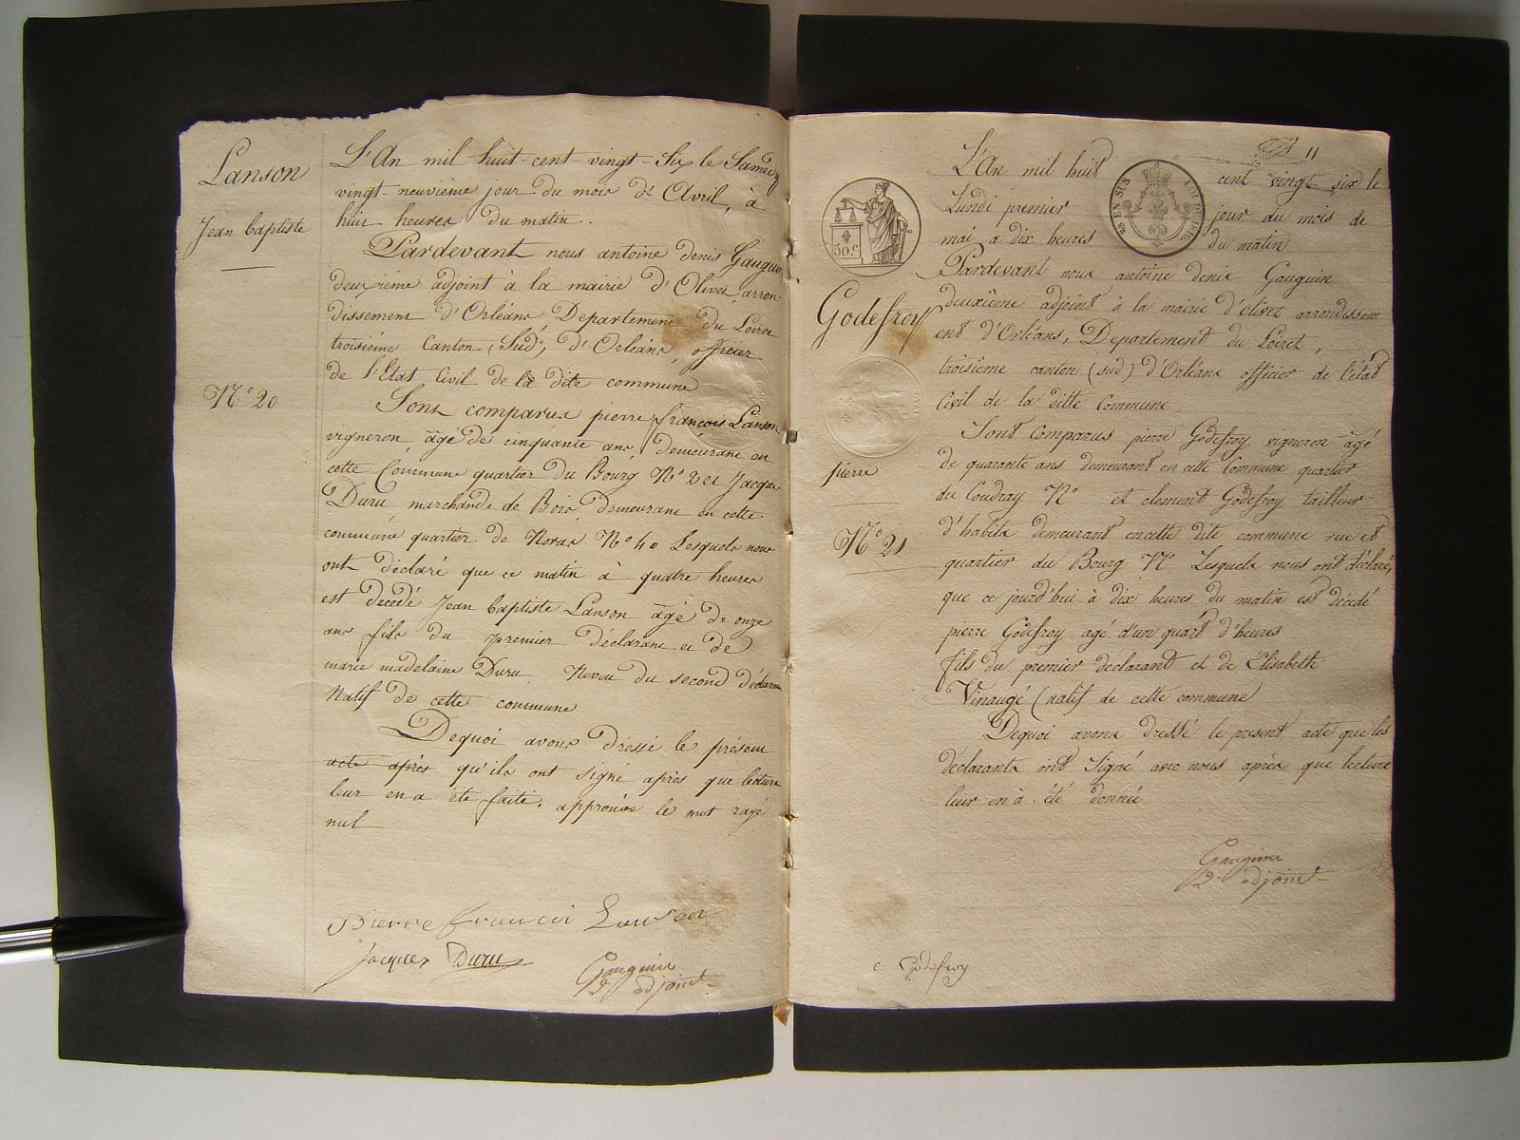 Lanson
Jean baptiste
N° 20
L'An mil huit-cent-vingt-Six le Samedi
vingt-neuvième jour du mois d'Avril, à
huit heures du matin.
Pardevant nous antoine denis Gauguin
deuxième adjoint à la mairie d'Olivet, arron-
dissement d'Orléans, Departement du Loiret
troisième Canton (Sud) d'Orléans, officier
de l'Etat Civil de la dite commune
Sont comparus pierre françois Lanson
vigneron âgé de cinquante ans demeurant en
cette Commune quartier du Bourg N° 2 et Jacques
Duru marchand de Bois demeurant en cette
commune quartier de Noras N° 40 Lesquels nous
ont déclaré que ce matin à quatre heures
est décédé Jean baptiste Lanson âgé de onze
ans fils du premier déclarant et de
marie madelaine Duru. Neveu du second déclarant
Natif de cette commune
Dequoi avons dressé le présent
acte après qu'ils ont signé après que lecture
leur en a été faite. approuvé le mot rayé
nul
Pierre francoi Lanson
jacques Duru
Gauguin
2e adjoint
11
L'An mil huit cent vingt six le
Lundi premier jour du mois de
mai à dix heures du matin
50 c
Pardevant nous antoine denis Gauguin
deuxième adjoint à la mairie d'olivet arrondissem
ent d'Orléans, Departement du Loiret,
troisième canton (sud) d'Orléans officier de l'état
Civil de la ditte Commune
Godefroy
pierre
N° 21
Sont Comparus pierre Godefroy vigneron âgé
de quarante ans demeurant en cette Commune quartier
du Coudray N° et clement Godefroy tailleur
d'habits demeurant en cette dite commune rue et
quartier du Bourg N° Lesquels nous ont déclaré,
que ce jourd'hui à dix heures du matin est décédé
pierre Godefroy agé d'un quart d'heures
fils du premier declarant et de Elisabeth
Vinaugé (natif de cette commune)
Dequoi avons dressé le present acte que les
déclarants ont Signé avec nous après que lecture
leur en à été donnée
Gauguin
2e adjoint
c Godefroy